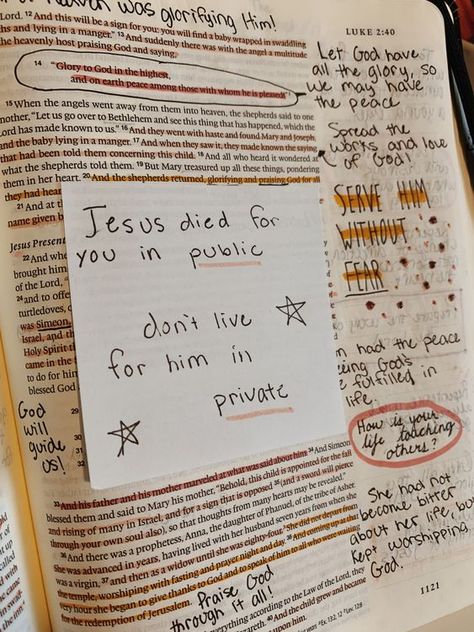 was glorifying Him!
LUKE 2:40
Lord. 12 And this will be a sign for you: you will find a baby wrapped in swaddling
and lying in a manger." 13 And suddenly there was with the angel a multitude
heavenly host praising God and saying,
14 "Glory to God in the highest,
and on earth peace among those with whom he is pleased!"
15 When the angels went away from them into heaven, the shepherds said to one
another, "Let us go over to Bethlehem and see this thing that has happened, which the
Lord has made known to us." 16 And they went with haste and found Mary and Joseph,
and the baby lying in a manger. 17 And when they saw it, they made known the saying
that had been told them concerning this child. 18 And all who heard it wondered at
what the shepherds told them. 19 But Mary treasured up all these things, pondering
them in her heart. 20 And the shepherds returned, glorifying and praising God for all
they had heard
21 And at
name given
Jesus Present
22 And
brought him
of the Lord,
24 and to offer
turtledoves,
was Simeon,
Israel, and the
Holy Spirit
came in the
to do for him
blessed God
29
30
31
32
33 And his father and his mother marveled at what was said about him. 34 And Simeon
blessed them and said to Mary his mother, "Behold, this child is appointed for the fall
and rising of many in Israel, and for a sign that is opposed 35 (and a sword will pierce
through your own soul also), so that thoughts from many hearts may be revealed."
36 And there was a prophetess, Anna, the daughter of Phanuel, of the tribe of Asher.
She was advanced in years, having lived with her husband seven years from when she
was a virgin, 37 and then as a widow until she was eighty-four. She did not depart from
the temple, worshiping with fasting and prayer night and day. 38 And coming up at that
very hour she began to give thanks to God and to speak of him to all who were waiting
for the redemption of Jerusalem.
everything according to the Law of the Lord, they
And the child grew and became
Let God have
all the glory, so
we may have
the peace
Spread the
works and love
of God!
SERVE HIM
WITHOUT
FEAR
Jesus died for
you in public
don't live
for him in
private
God
will
guide
us!
had the peace
God's
fulfilled in
life.
How is your
life teaching
others?
She had not
become bitter
about her life, but
kept worshipping
God.
Praise God
through it all!
1121